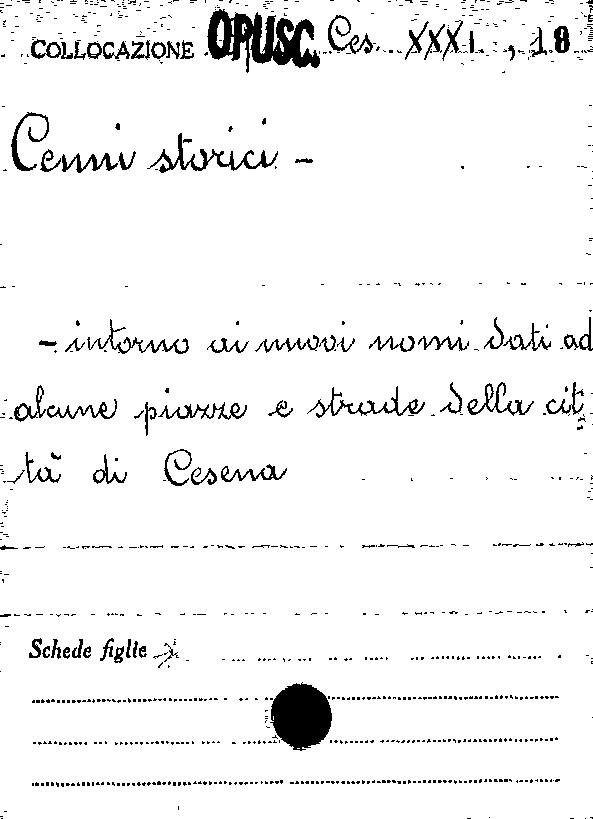 COLLOCAZIONE OPUSC. Ces. XXXI, 18
Cenni storici -
- intorno ai nuovi nomi dati ad
alcune piazze e strade della cit
tà di Cesena
Schede figlie